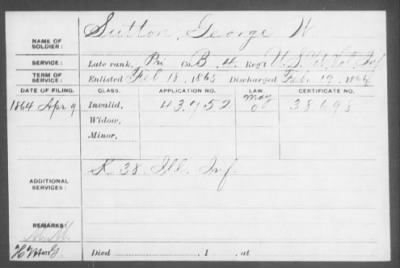 NAME OF SOLDIER: Sutton, George W
SERVICE: Late rank, Pri Co. B, 4, Reg't U.S. Vet Vol Inf
TERM OF SERVICE: Enlisted Feb 18, 1865 Discharged Feb. 17, 1866
DATE OF FILING. CLASS. APPLICATION NO. LAW. CERTIFICATE NO.
1864 Apr 9 Invalid, 43,752 38698
Widow,
Minor,
ADDITIONAL SERVICES: K 38 Ill. Inf
REMARKS:
Died , 1 , at